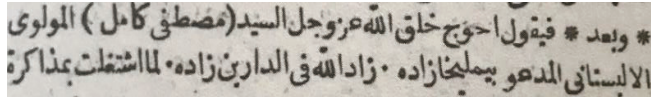 * وبعد * فيقول احوج خلق الله عز وجل السيد (مصطفى كامل) المولوى
الالبستانى المدعو بيمليخازاده · زاد الله فى الدارين زاده · لما اشتغلت بمذاكرة